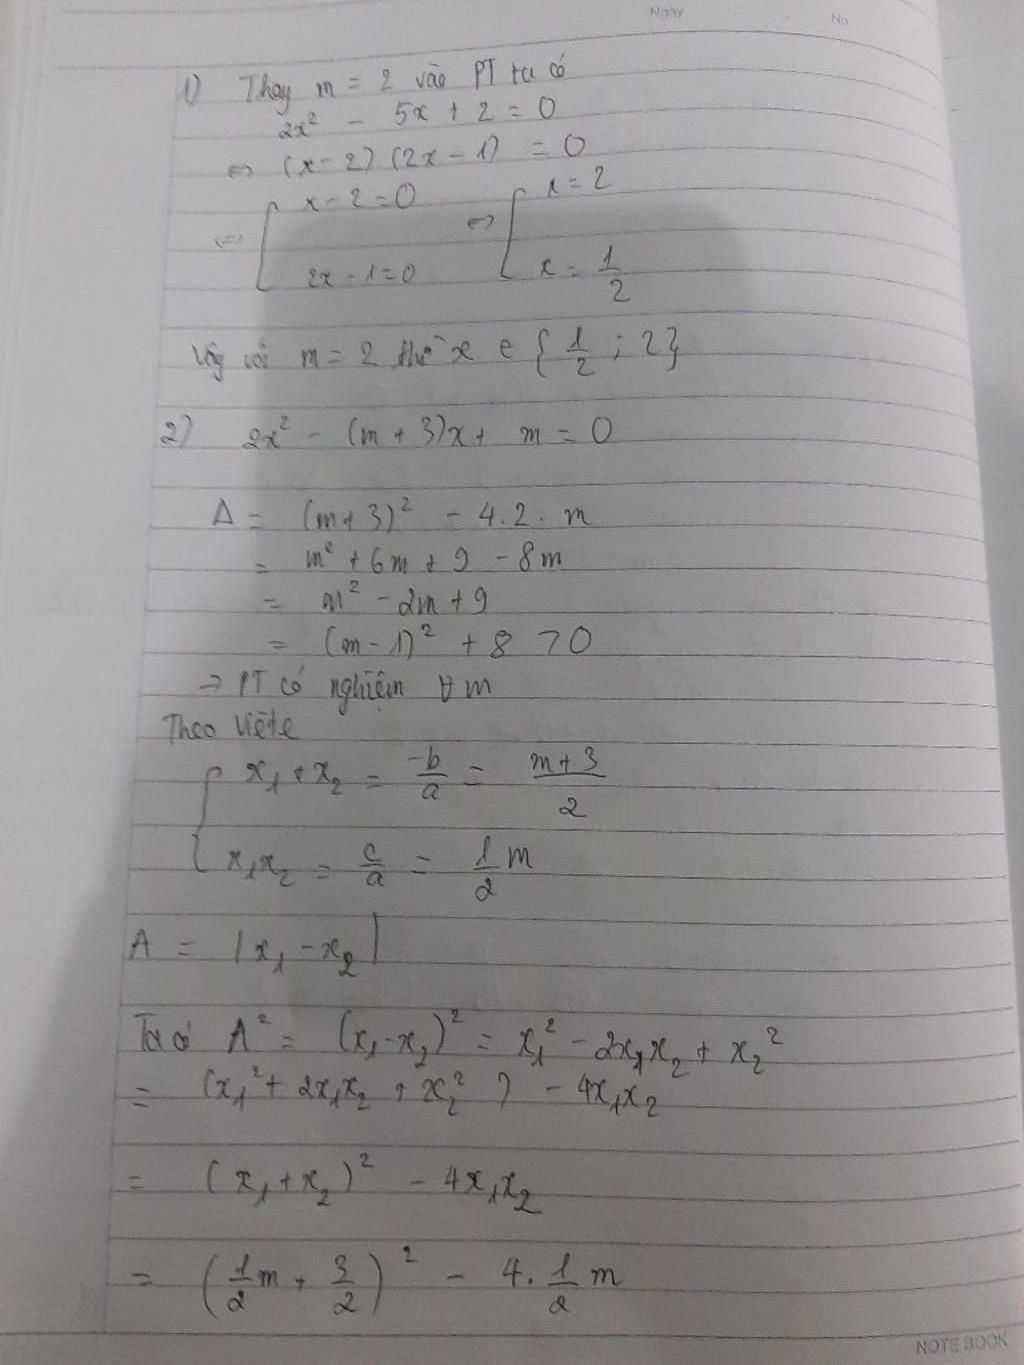 Ngày
No
1) Thay m = 2 vào PT ta có
2x² - 5x + 2 = 0
⇔ (x - 2) (2x - 1) = 0
⇔ [ x - 2 = 0 ⇔ [ x = 2
2x - 1 = 0 x = 1/2
Vậy với m = 2 thì x ∈ { 1/2 ; 2 }
2) 2x² - (m + 3)x + m = 0
Δ = (m + 3)² - 4.2.m
= m² + 6m + 9 - 8m
= m² - 2m + 9
= (m - 1)² + 8 > 0
→ PT có nghiệm ∀ m
Theo Viète
{ x₁ + x₂ = -b/a = (m + 3)/2
x₁x₂ = c/a = 1/2 m
A = |x₁ - x₂|
Ta có A² = (x₁ - x₂)² = x₁² - 2x₁x₂ + x₂²
= (x₁² + 2x₁x₂ + x₂²) - 4x₁x₂
= (x₁ + x₂)² - 4x₁x₂
= (1/2 m + 3/2)² - 4. 1/2 m
NOTE BOOK